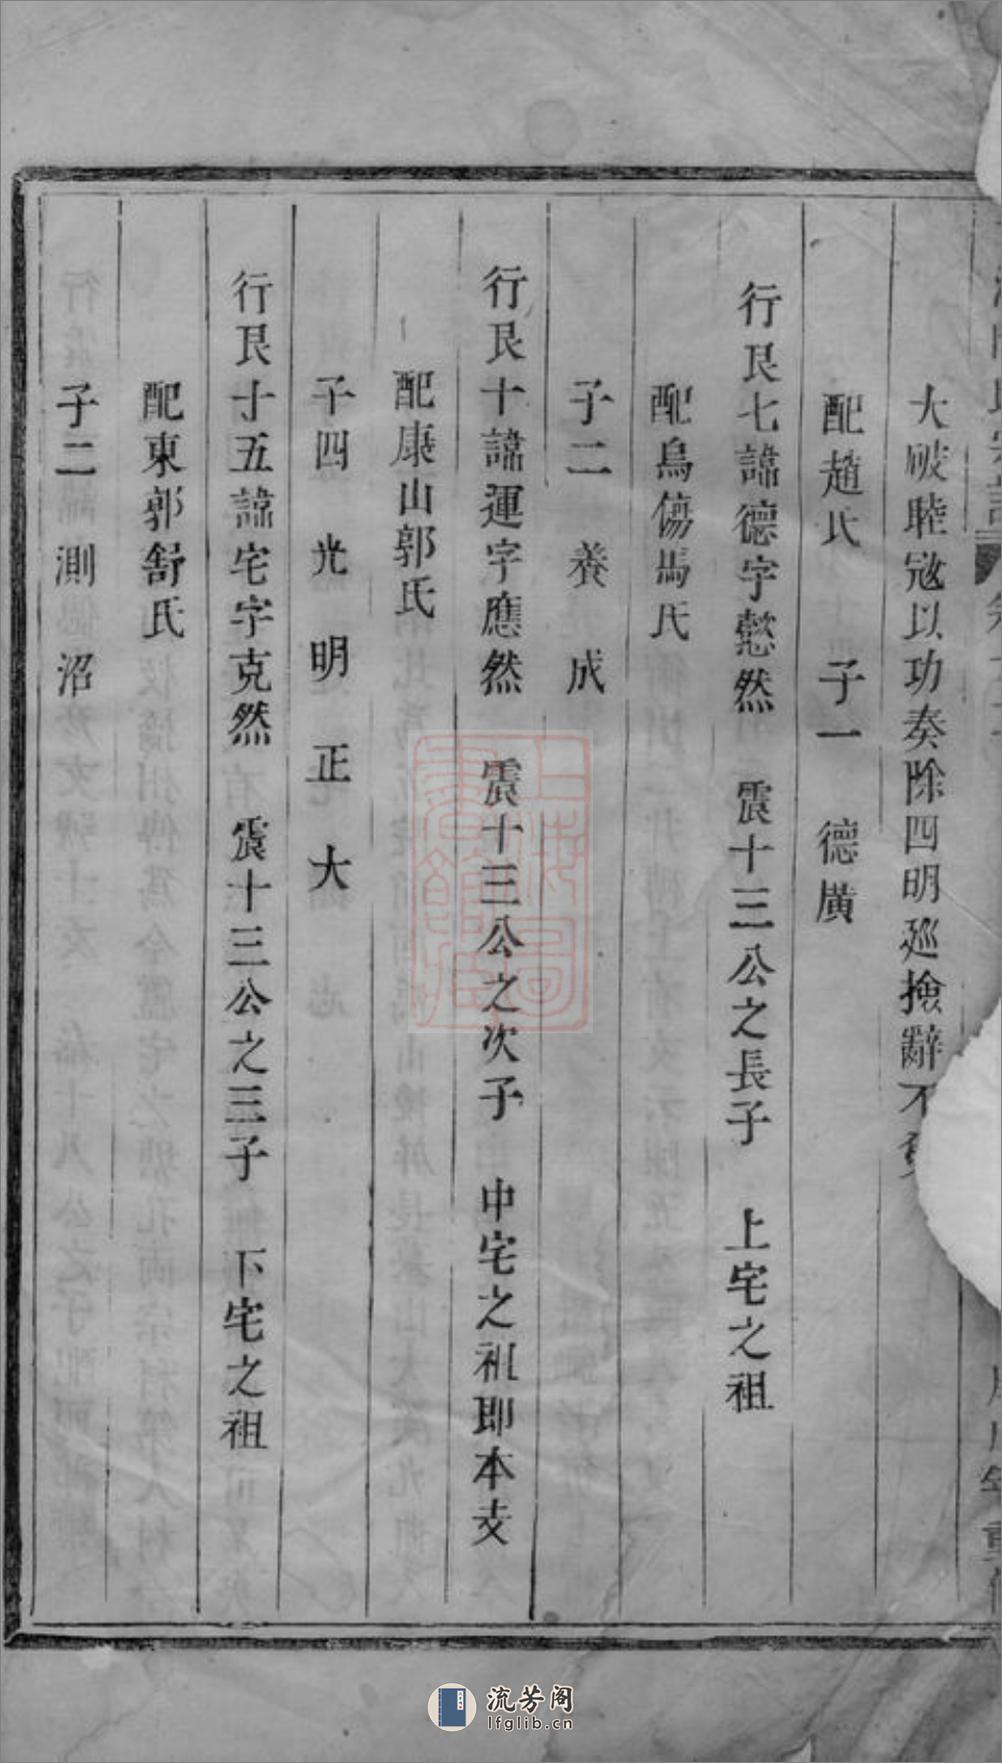 大破睦寇以功奏除四明廵撿辭不
配趙氏　子一　德廣
行艮七諱德字懿然　震十三公之長子　上宅之祖
配烏傷馬氏
子二　養　成
行艮十諱運字應然　震十三公之次子　中宅之祖即本支
配康山郭氏
子四　光　明　正　大
行艮十五諱宅字克然　震十三公之三子　下宅之祖
配東郭舒氏
子二　測　沼
上海圖書館藏
流芳阁
lfglib.cn